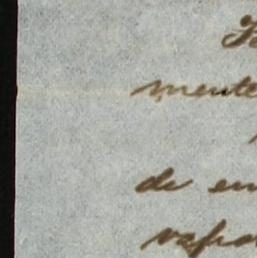 mente
de en
vapo